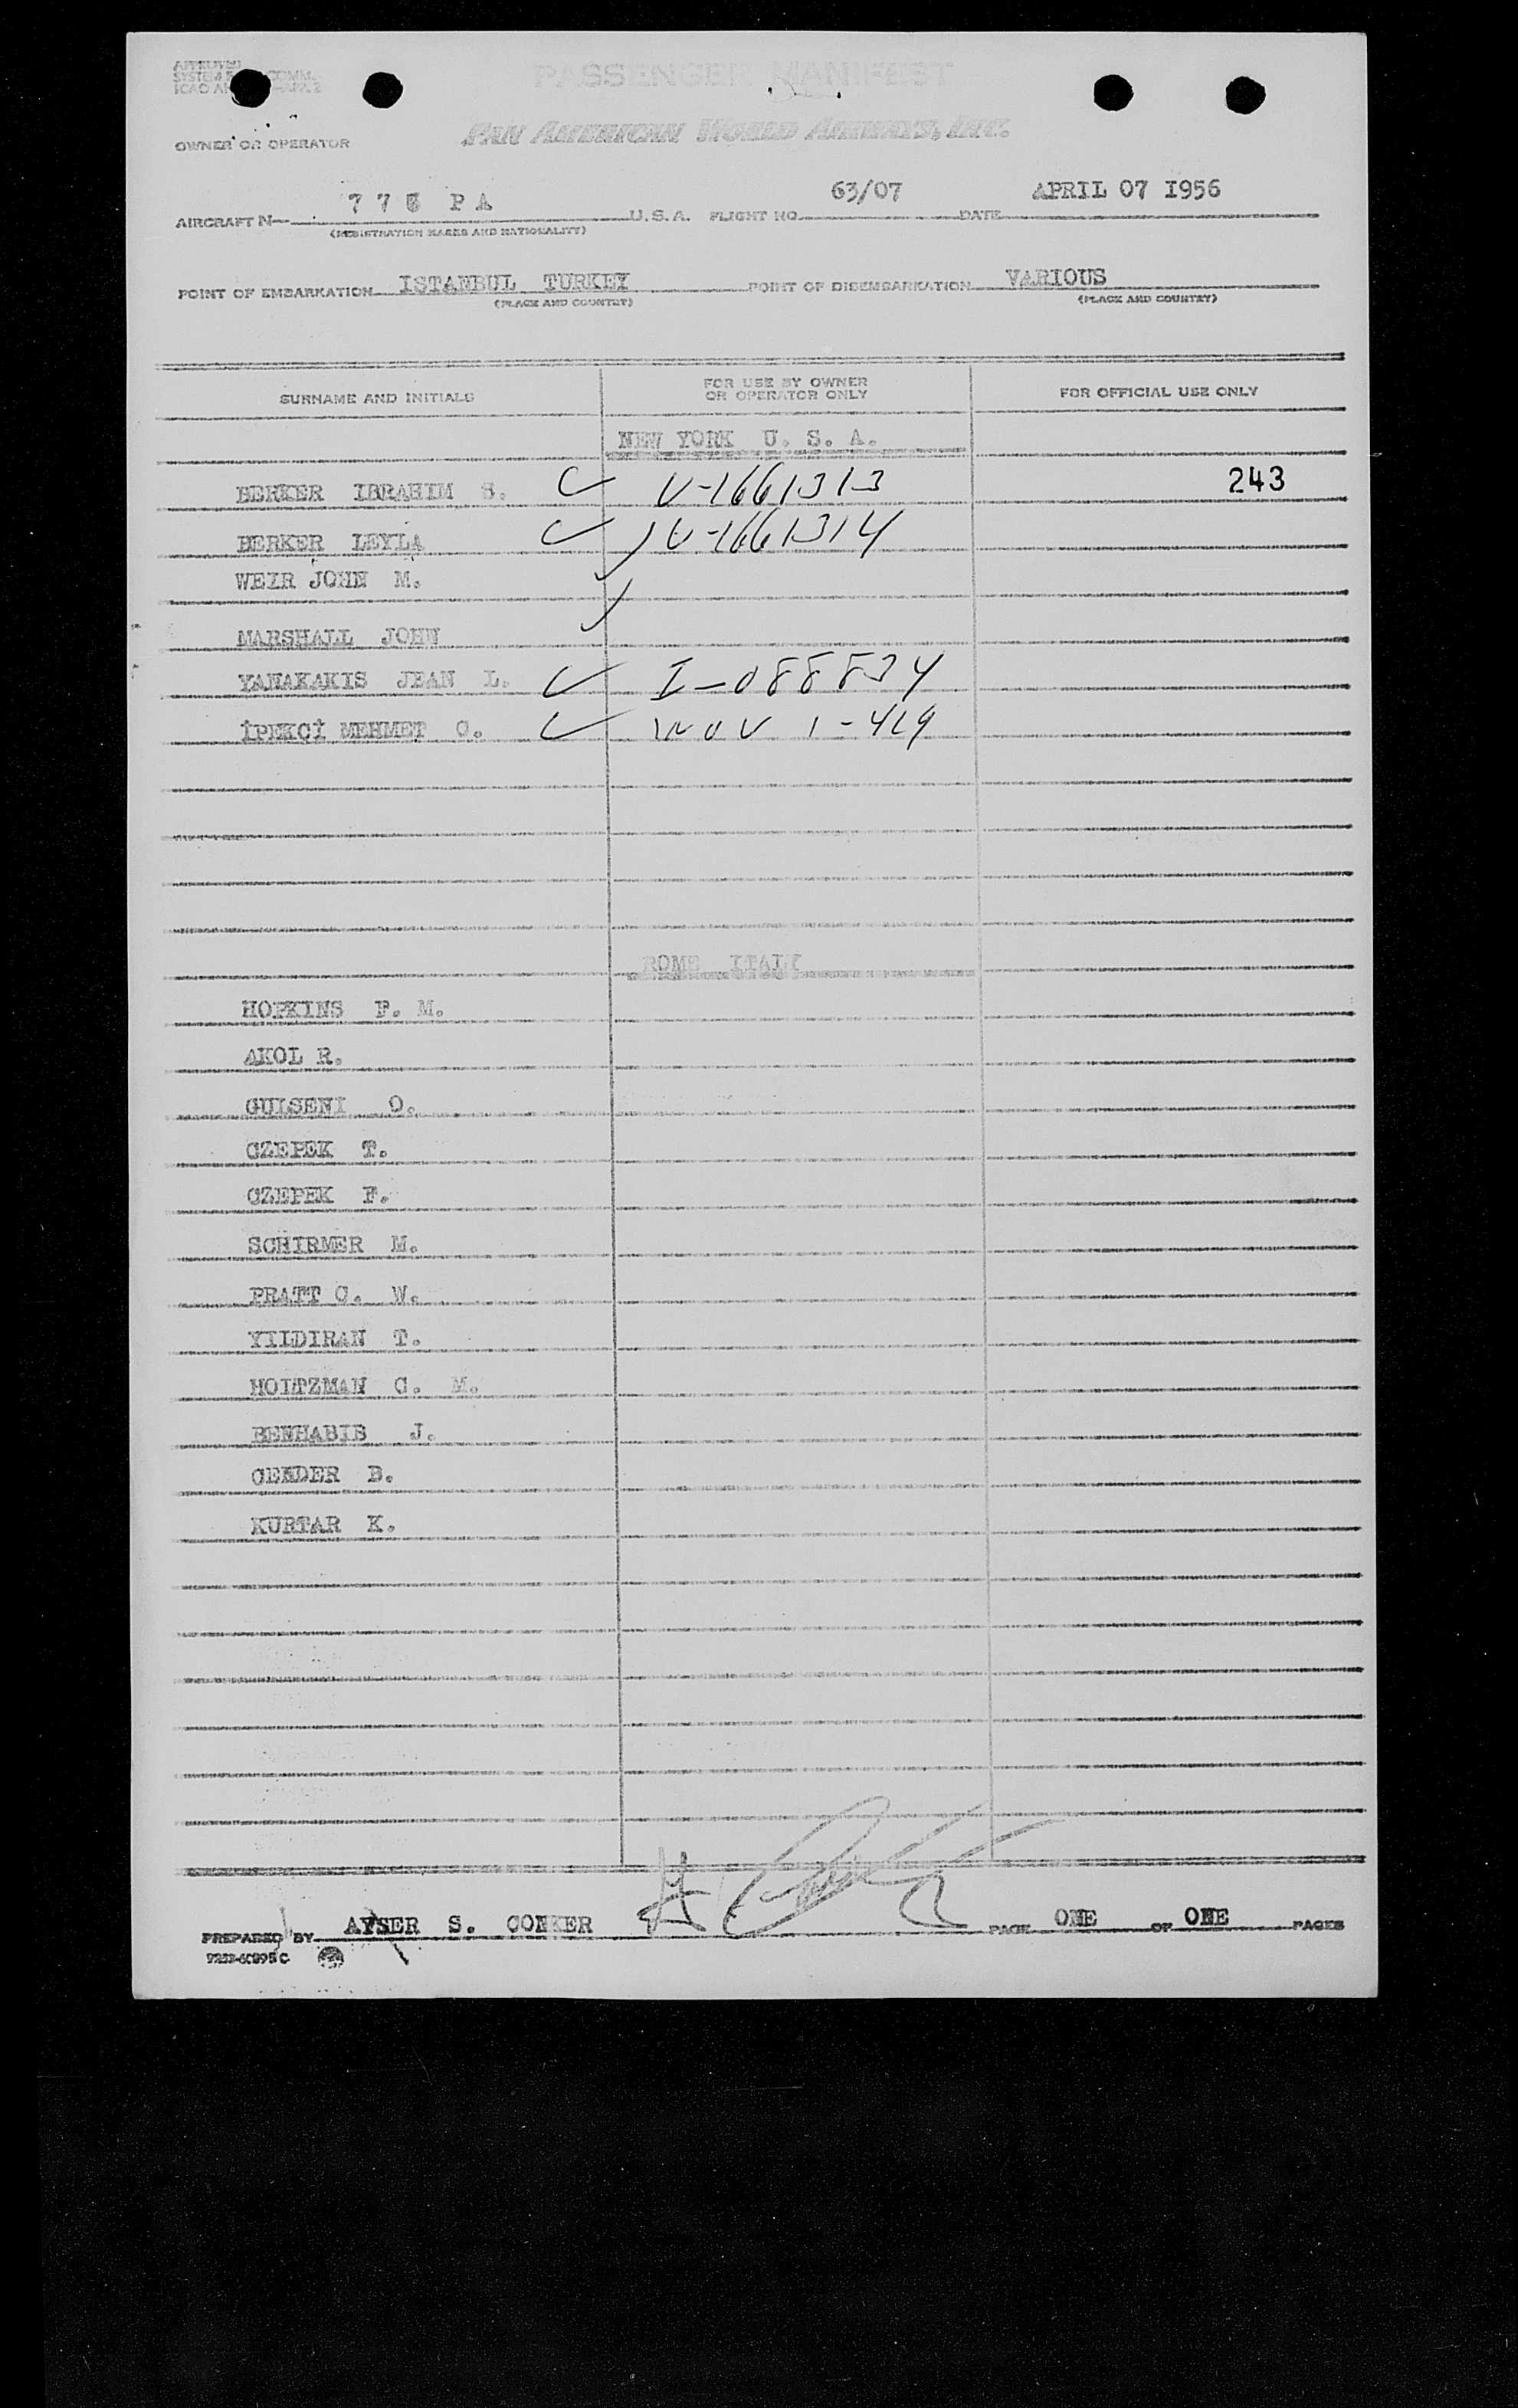 APPROVED
SYSTEM COMM.
ICAO
PASSENGER MANIFEST
OWNER OR OPERATOR
PAN AMERICAN WORLD AIRWAYS, INC.
AIRCRAFT N- 77 PA U.S.A. FLIGHT NO. 63/07 DATE APRIL 07 1956
(REGISTRATION MARKS AND NATIONALITY)
POINT OF EMBARKATION ISTANBUL TURKEY POINT OF DISEMBARKATION VARIOUS
(PLACE AND COUNTRY) (PLACE AND COUNTRY)
SURNAME AND INITIALS FOR USE BY OWNER OR OPERATOR ONLY FOR OFFICIAL USE ONLY
NEW YORK U. S. A.
BERKER IBRAHIM S. V-1661313 243
BERKER LEYLA V-1661314
WEIR JOHN M.
MARSHALL JOHN
YANAKAKIS JEAN L. I-088834
İPEKÇİ MEHMET C. 1-419
ROME ITALY
HOPKINS F. M.
AKOL R.
GULSENI O.
CZEPEK T.
CZEPEK F.
SCHIRMER M.
PRATT C. W.
YILDIRAN T.
HOLTZMAN C. M.
BENHABIB J.
CENDER B.
KURTAR K.
PREPARED BY AYSER S. CONKER PAGE ONE OF ONE PAGES